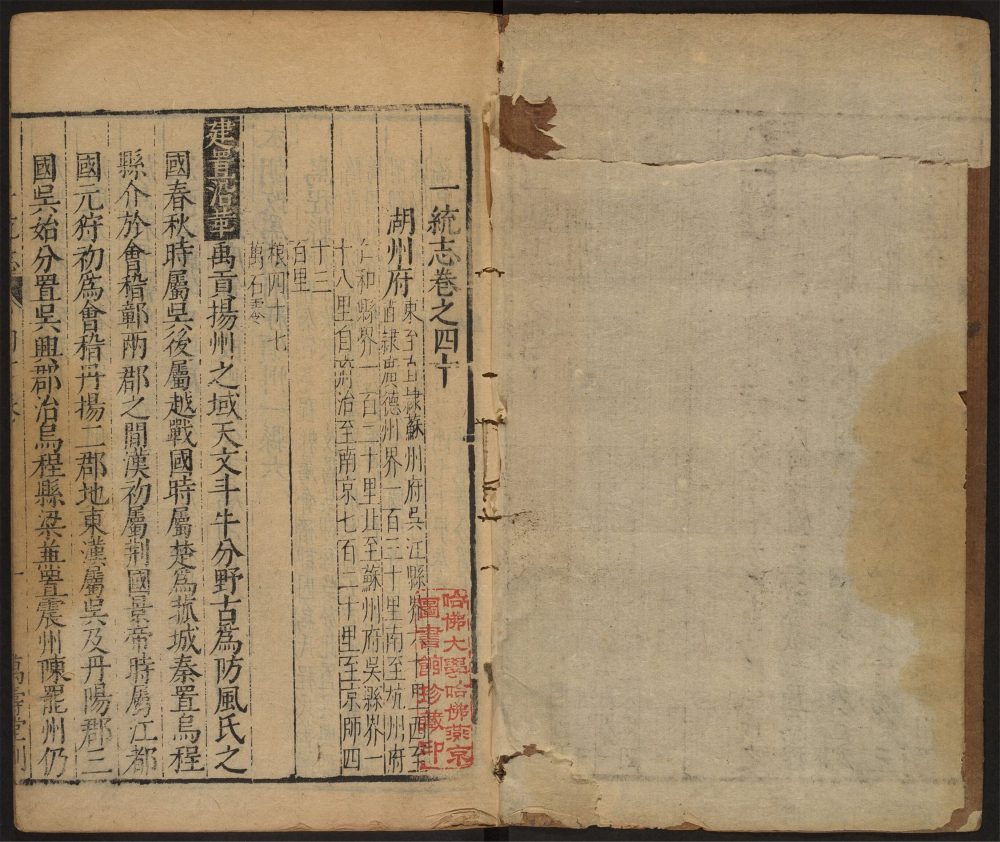 一統志卷之四十
湖州府
東至直隸蘇州府吳江縣界
十里西至
直隸廣德州界一百三十里南至杭州府
仁和縣界一百二十里北至蘇州府吳縣界一
十八里自府治至南京七百二十里至京師四
十三
百里
糧四十七
萬石零
建置沿革禹貢揚州之域天文斗牛分野古為防風氏之
國春秋時屬吳後屬越戰國時屬楚為菰城秦置烏程
縣介於會稽鄣兩郡之間漢初屬荆國景帝時屬江都
國元狩初為會稽丹揚二郡地東漢屬吳及丹陽郡三
國吳始分置吳興郡治烏程縣梁兼置震州陳罷州仍
萬壽堂刊
哈佛大學哈佛燕京
圖書館珍藏印